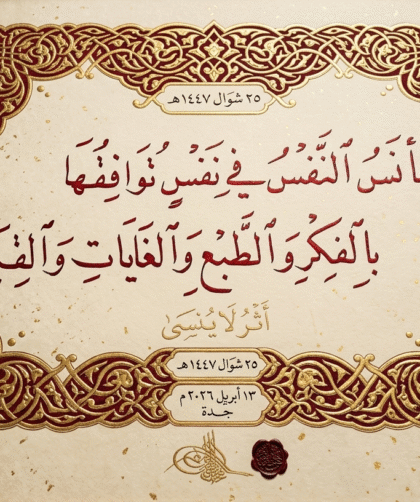 ٢٥ شَوَال ١٤٤٧هـ
أنَسُ ٱلنَّفْسُ فِي نَفْسٍ تُوَافِقُهَا
بِٱلفِكْرِ وَٱلطَّبْعِ وَٱلغَايَاتِ
أَثَرٌ لَا يُنسَىٰ
٢٥ شَوَال ١٤٤٧هـ
١٣ أبريل ٢٠٢٦ م
جدة